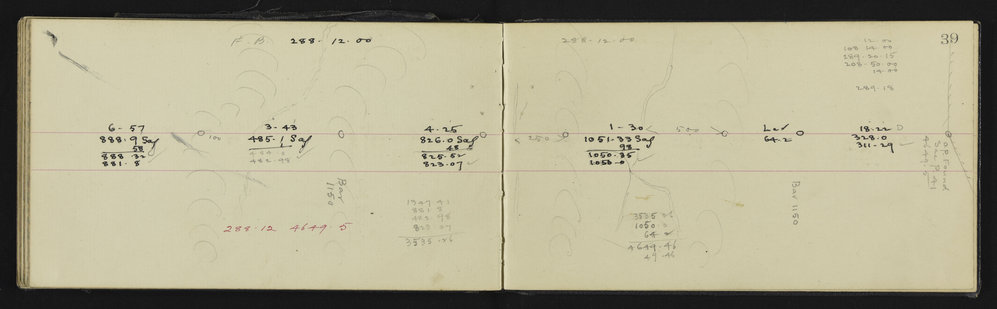 F B 288.12.00
6-57
888.9 Sag
58
888.32
881.8
100
3-43
485.1 Sag
482.98
4-25
826.0 Sag
48
825.52
823.07
Bar 1150
288.12 4649.5
1347 41
881 8
482 98
823 07
3535.26
288.12.00
39
12 00
108 14 00
289.20.15
208.50.00
14.00
289.18
250
1-30
1051.33 Sag
98
1050.35
1050.0
500
Lev
64.2
18.22
328.0
311.29
OP Found
See P 41
4649.5
Bar 1150
3535 26
1050 0
64 2
4649.46
49.46